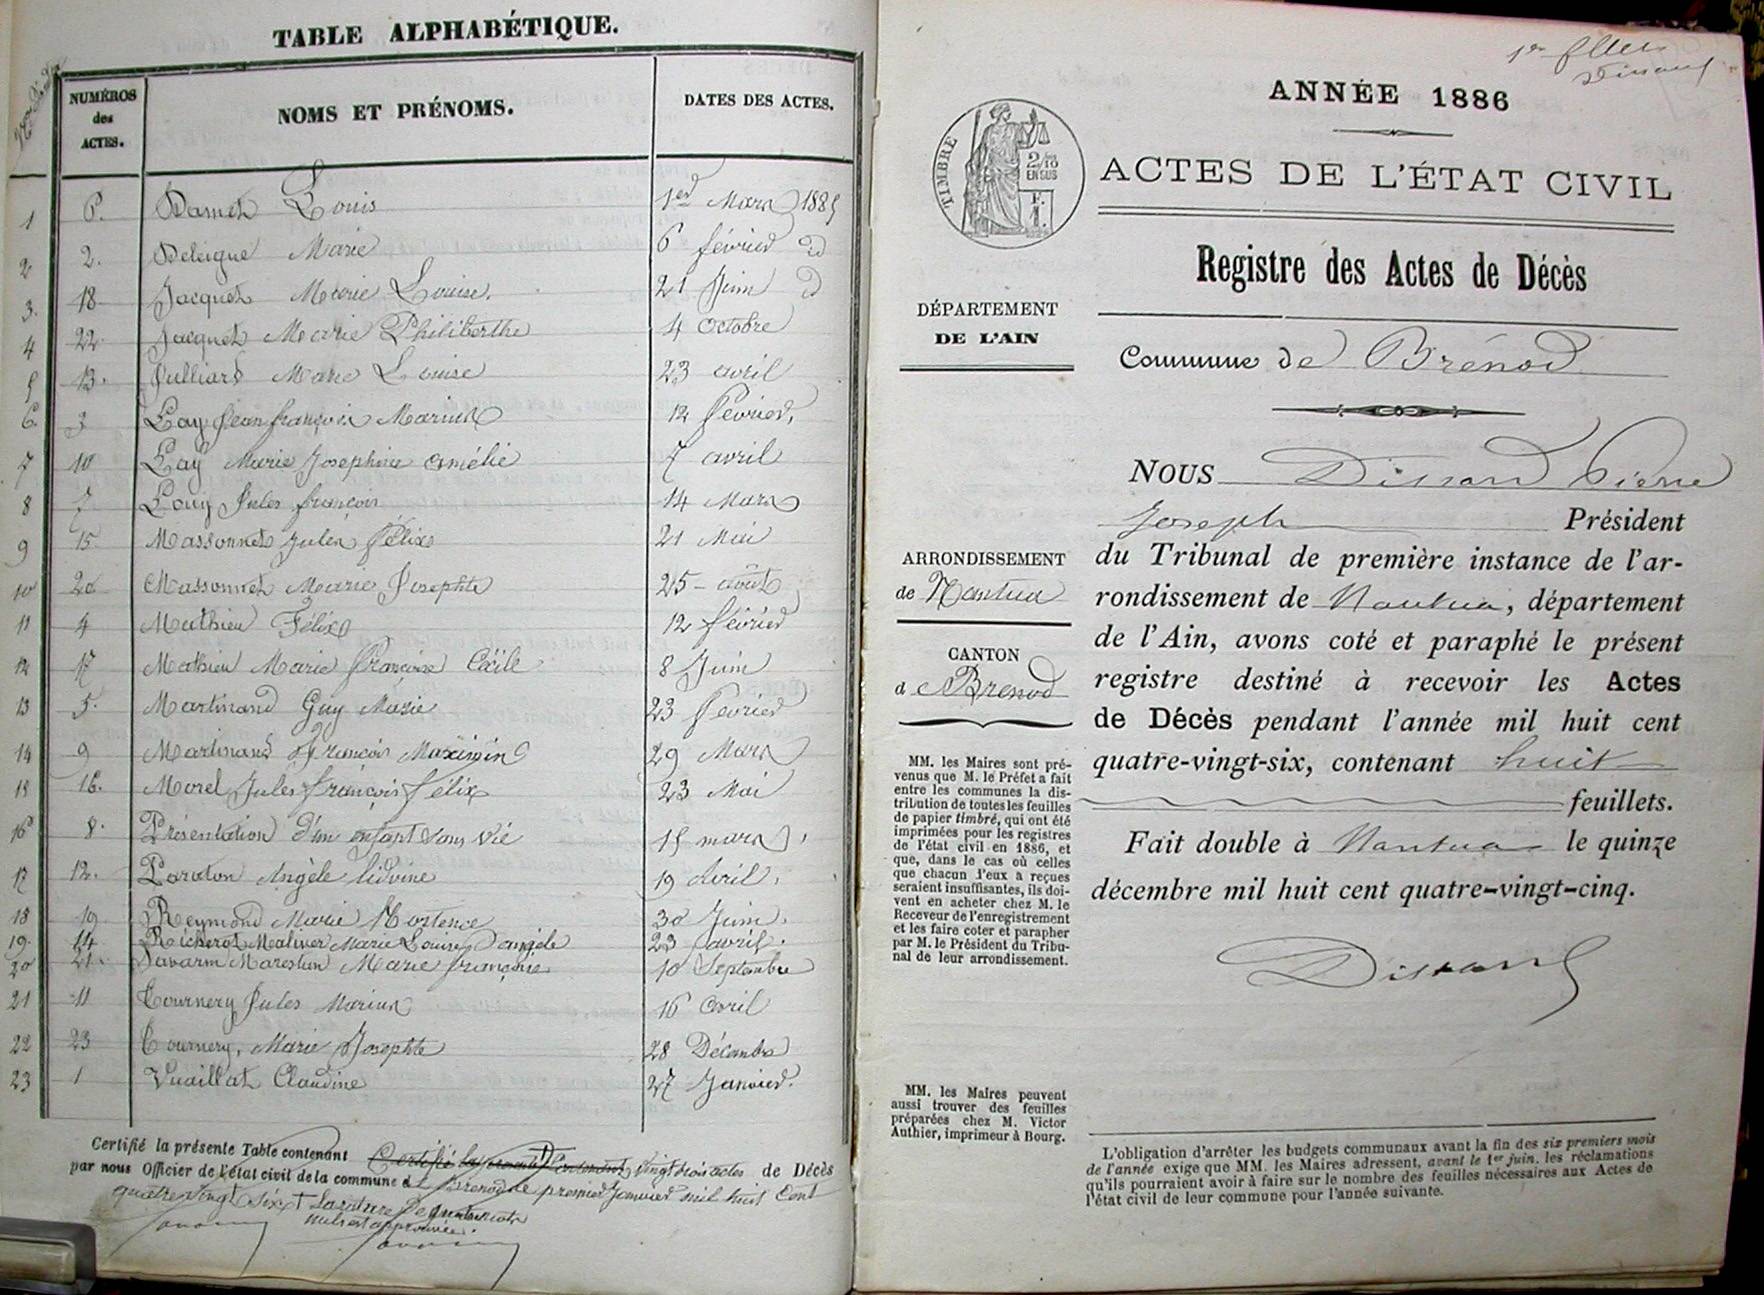 TABLE ALPHABÉTIQUE.
NUMÉROS des ACTES.
NOMS ET PRÉNOMS.
DATES DES ACTES.
1 6. Damet Louis 1er Mars 1885
2 2. Deleigue Marie 6 février d
3. 18 Jacquet Marie Louise. 21 Juin d
4 22 Jacquet Marie Philiberthe 4 octobre
5 13. Julliard Marie Louise 23 avril
6 3 Lay Jean françois Marius 12 février,
7 10 Lay Marie Josephine amélie 7 avril
8 7 Louy Jules françois 14 Mars
9 15 Massonnet Jules Félix 21 Mai
10 20 Massonnet Marie Josephte 25 août
11 4 Mathieu Félix 12 février
12 17 Mathieu Marie françoise Cécile 8 Juin
13 5. Martinand Guy Marie 23 février
14 9 Martinand françois Maximin 29 Mars
15 16. Morel Jules françois félix 23 Mai
16 8. Présentation d'un enfant sans vie 15 mars
17 12. Paraton Angèle lidvine 19 Avril.
18 19 Reymond Marie Hortence 30 Juin.
19. 14 Richerot Marie Louise angèle 23 avril.
20 21. Savarin Marestan Marie françoise 10 Septembre
21 11 Tournery Jules Marius 16 avril
22 23 Tournery, Marie Josephte 28 Décembre
23 1 Vuaillat Claudine 27 Janvier.
Certifié la présente Table contenant Certifié la présente contenant vingt trois actes de Décès
par nous Officier de l'état civil de la commune d Brenod le premier Janvier mil huit Cent
quatre vingt six
1er feuillet
Dissard
ANNÉE 1886
TIMBRE
2/10 EN SUS
ACTES DE L'ÉTAT CIVIL
Registre des Actes de Décès
DÉPARTEMENT
DE L'AIN
Commune de Brénod
NOUS Dissard Pierre
Joseph Président
du Tribunal de première instance de l'ar-
rondissement de Nantua, département
de l'Ain, avons coté et paraphé le présent
registre destiné à recevoir les Actes
de Décès pendant l'année mil huit cent
quatre-vingt-six, contenant huit
feuillets.
Fait double à Nantua le quinze
décembre mil huit cent quatre-vingt-cinq.
Dissard
ARRONDISSEMENT
de Nantua
CANTON
d Brenod
MM. les Maires sont pré-
venus que M. le Préfet a fait
entre les communes la dis-
tribution de toutes les feuilles
de papier timbré, qui ont été
imprimées pour les registres
de l'état civil en 1886, et
que, dans le cas où celles
que chacun d'eux a reçues
seraient insuffisantes, ils doi-
vent en acheter chez M. le
Receveur de l'enregistrement
et les faire coter et parapher
par M. le Président du Tribu-
nal de leur arrondissement.
MM. les Maires peuvent
aussi trouver des feuilles
préparées chez M. Victor
Authier, imprimeur à Bourg.
L'obligation d'arrêter les budgets communaux avant la fin des six premiers mois
de l'année exige que MM. les Maires adressent, avant le 1er juin, les réclamations
qu'ils pourraient avoir à faire sur le nombre des feuilles nécessaires aux Actes de
l'état civil de leur commune pour l'année suivante.